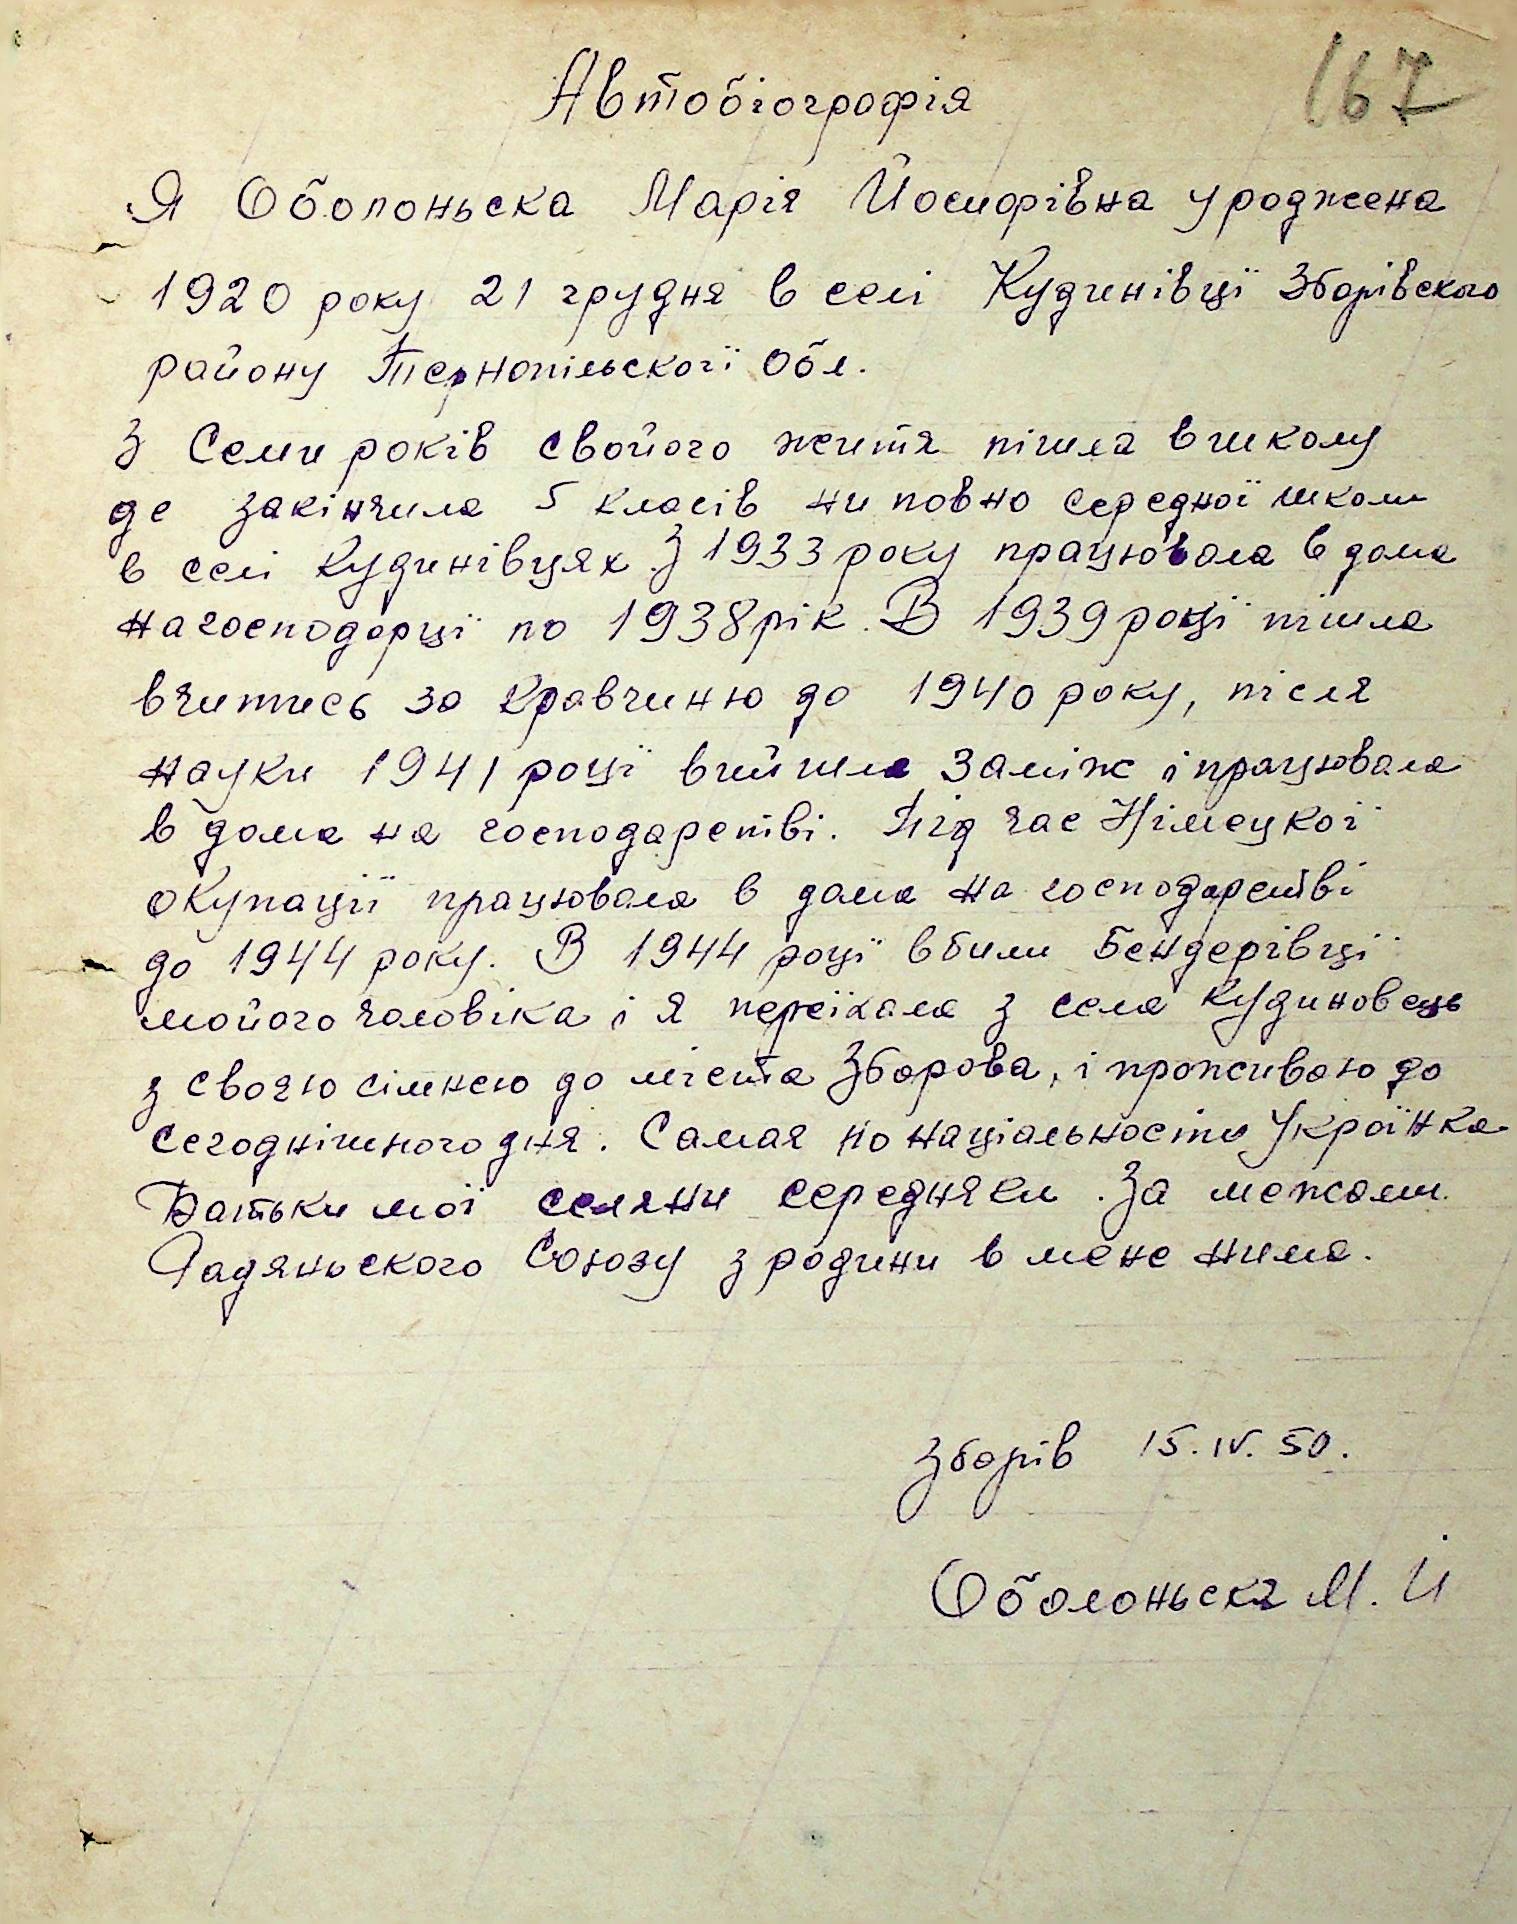 Автобіографія
167
Я Оболоньска Марія Йосифрівна уроджена
1920 року 21 грудня в селі Кудинівці Зборівского
району Тернопільскої Обл.
З Семи років свойого житя пішла в школу
де закінчила 5 класів ни повно середної школи
в селі Кудинівцях. З 1933 року працювала в дома
на господарці по 1938 рік. В 1939 році пішла
вчитись за Кравчиню до 1940 року, після
науки 1941 році вийшла Заміж і працювала
в дома на господарстві. Під час Німецкої
окупації працювала в дома на господарстві
до 1944 року. В 1944 році вбили Бендерівці
мойого чоловіка і я переїхала з села Кудиновець
з своєю сімнею до міста Зборова, і проживаю до
сегоднішного дня. Самая по націальности Українка
Батьки мої селяни середняки. За межами
Радяньского Союзу з родини в мене нима.
Зборів 15. IV. 50.
Оболоньска М. Й